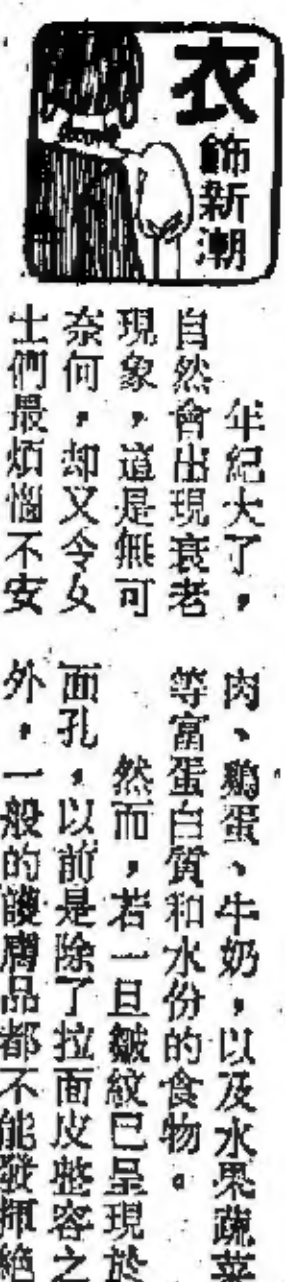 衣
飾新潮
年紀大了，
自然會出現衰老
現象，這是無可
奈何，却又令女
士們最煩惱不安
肉、鷄蛋、牛奶，以及水果蔬菜
等富蛋白質和水份的食物。
然而，若一旦皺紋已呈現於
面孔，以前是除了拉面皮整容之
外，一般的護膚品都不能發揮絕